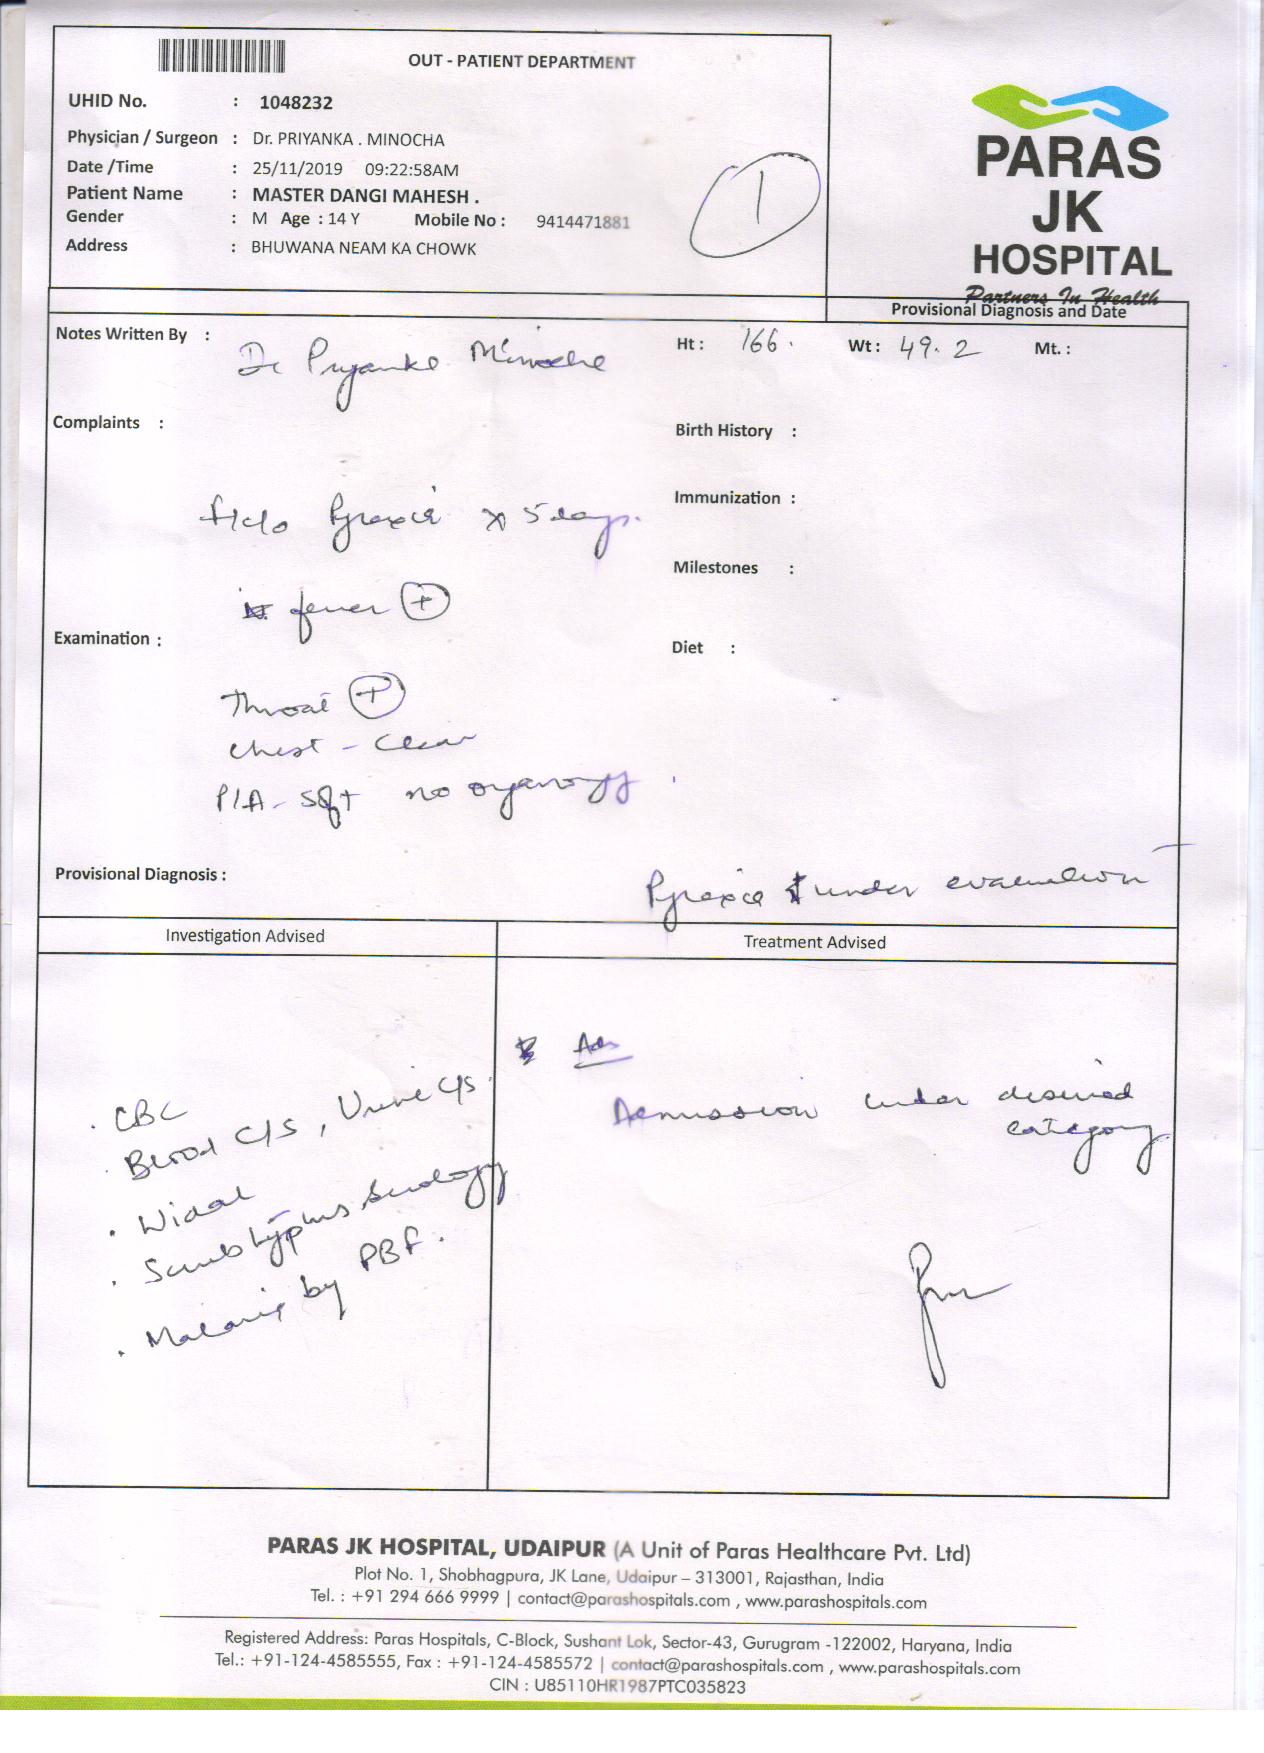 OUT - PATIENT DEPARTMENT
UHID No. : 1048232
Physician / Surgeon : Dr. PRIYANKA . MINOCHA
Date /Time : 25/11/2019 09:22:58AM
Patient Name : MASTER DANGI MAHESH .
Gender : M Age : 14 Y Mobile No : 9414471881
Address : BHUWANA NEAM KA CHOWK
1
PARAS
JK
HOSPITAL
Partners In Health
Provisional Diagnosis and Date
Notes Written By : Dr Priyanka Minocha
Ht : 166. Wt : 49.2 Mt. :
Complaints :
Birth History :
Immunization :
Pyrexia x 5 days.
Milestones :
fever +
Examination :
Diet :
Throat +
Chest - Clear
P/A - Soft no
Provisional Diagnosis :
Pyrexia under evaluation
Investigation Advised
Treatment Advised
Adv
Admission under desired
category
. CBC
. Blood C/S, Urine C/S.
. Widal
. Scrub typhus Serology
. Malaria by PBF.
PARAS JK HOSPITAL, UDAIPUR (A Unit of Paras Healthcare Pvt. Ltd)
Plot No. 1, Shobhagpura, JK Lane, Udaipur – 313001, Rajasthan, India
Tel. : +91 294 666 9999 | contact@parashospitals.com , www.parashospitals.com
Registered Address: Paras Hospitals, C-Block, Sushant Lok, Sector-43, Gurugram -122002, Haryana, India
Tel.: +91-124-4585555, Fax : +91-124-4585572 | contact@parashospitals.com , www.parashospitals.com
CIN : U85110HR1987PTC035823